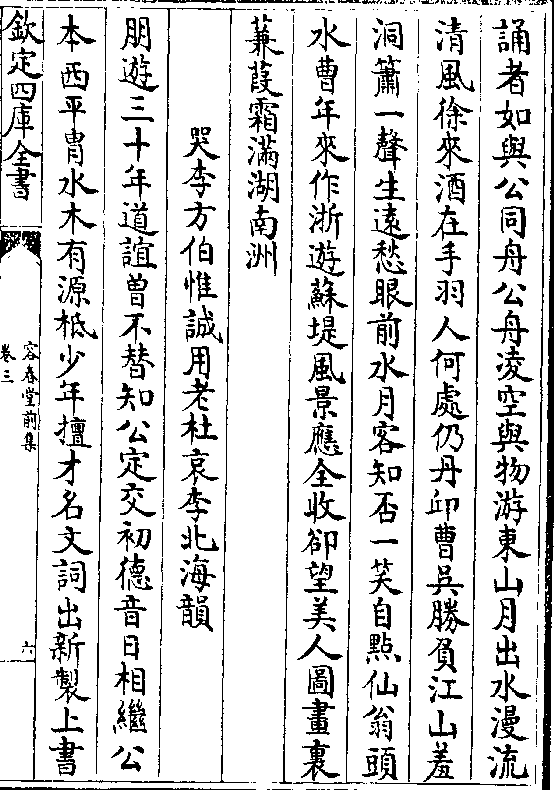 誦者如與公同舟公舟凌空與物游東山月出水漫流
清風徐來酒在手羽人何處仍丹邱曹吳勝負江山羞
洞簫一聲生遠愁眼前水月客知否一笑自點仙翁頭
水曹年來作浙遊蘇堤風景應全收卻望美人圖畫裏
蒹葭霜滿湖南洲
哭李方伯惟誠用老杜哀李北海韻
朋遊三十年道誼曽不替知公定交初德音日相繼公
本西平胄水木有源柢少年擅才名文詞出新製上書
欽定四庫全書
容春堂前集
卷三
六